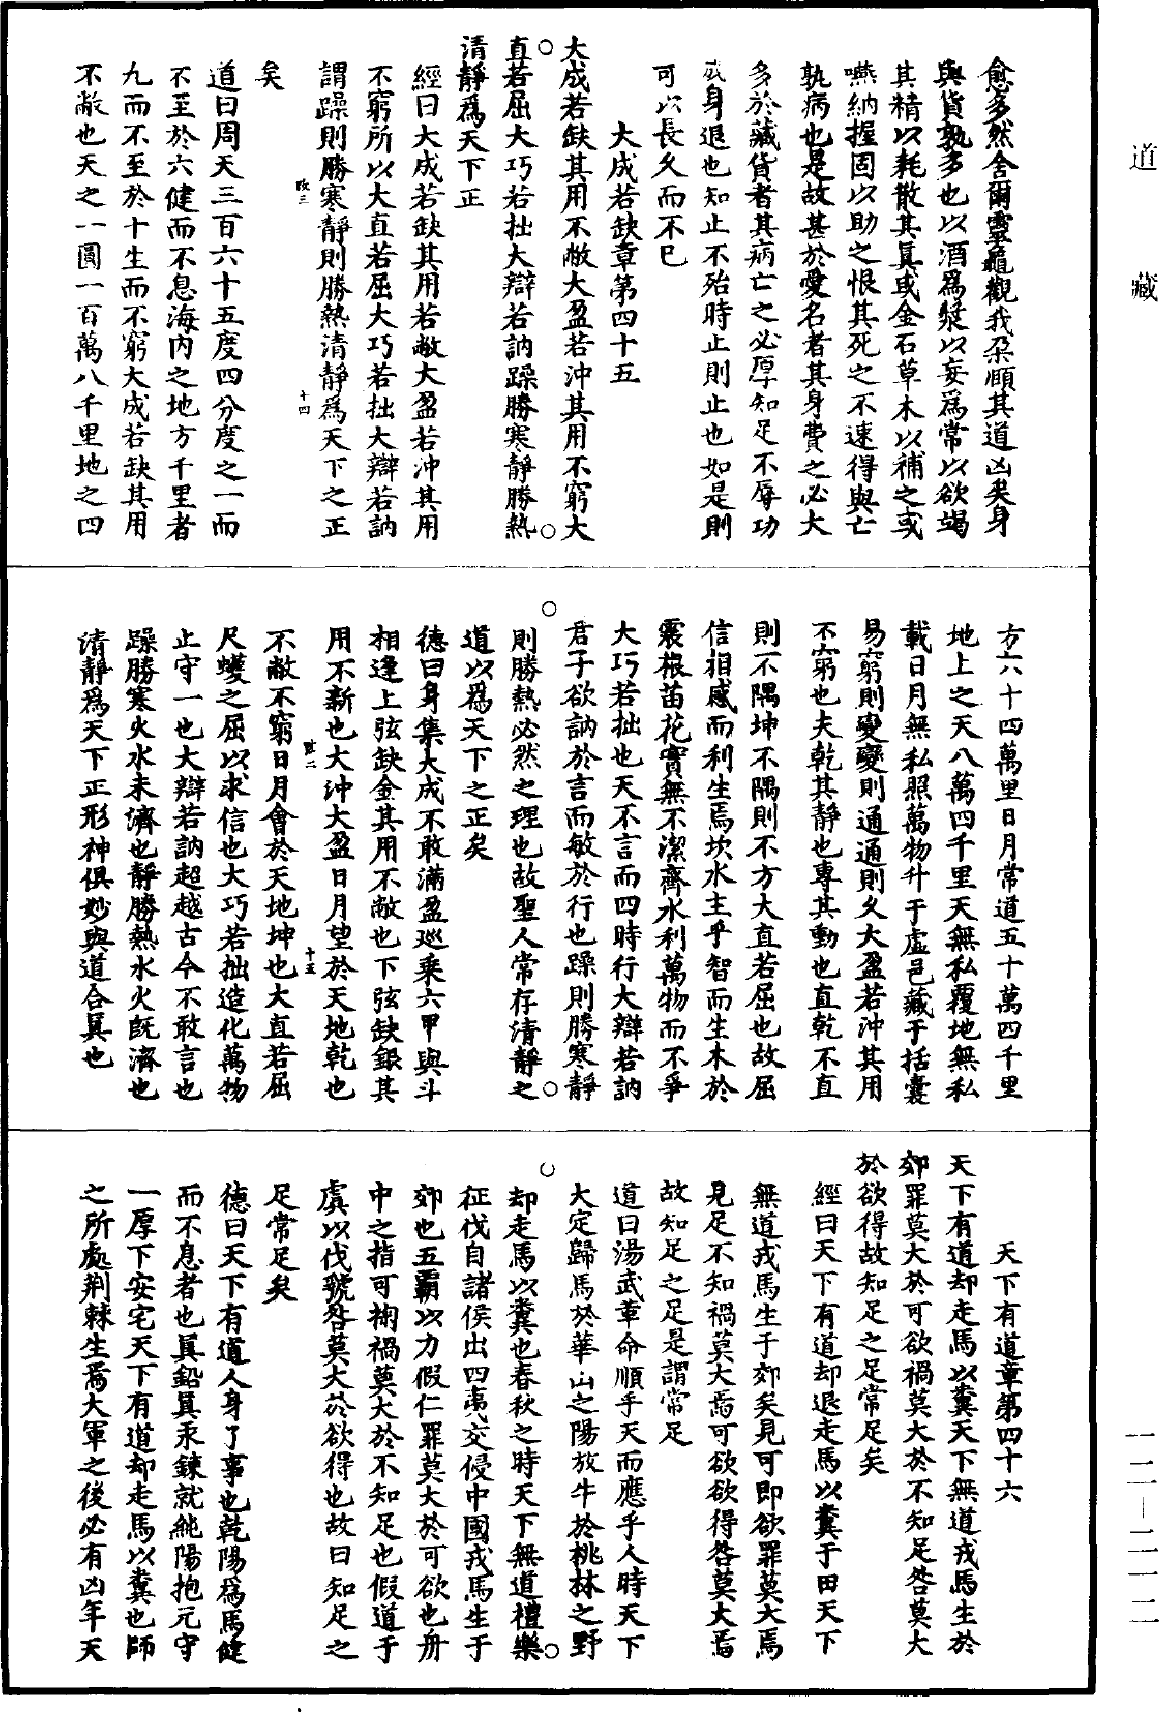 道藏
愈多然舍爾靈龜觀我朶頤其道凶矣身
與貨孰多也以酒爲漿以妄爲常以欲竭
其精以耗散其真或金石草木以補之或
嚥納握固以助之恨其死之不速得與亡
孰病也是故甚於愛名者其身費之必大
多於藏貨者其病亡之必厚知足不辱功
成身退也知止不殆時止則止也如是則
可以長久而不已
大成若缺章第四十五
大成若缺其用不敝大盈若沖其用不窮大
直若屈大巧若拙大辯若訥躁勝寒靜勝熱
清靜爲天下正
經曰大成若缺其用若敝大盈若沖其用
不窮所以大直若屈大巧若拙大辯若訥
謂躁則勝寒靜則勝熱清靜爲天下之正
矣
道曰周天三百六十五度四分度之一而
不至於六健而不息海內之地方千里者
九而不至於十生而不窮大成若缺其用
不敝也天之一圓一百萬八千里地之四
方六十四萬里日月常道五十萬四千里
地上之天八萬四千里天無私覆地無私
載日月無私照萬物升于虛邑藏于括囊
易窮則變變則通通則久大盈若沖其用
不窮也夫乾其靜也專其動也直乾不直
則不隅坤不隅則不方大直若屈也故屈
信相感而利生焉坎水主乎智而生木於
震根苗花實無不潔齊水利萬物而不爭
大巧若拙也天不言而四時行大辯若訥
君子欲訥於言而敏於行也躁則勝寒靜
則勝熱必然之理也故聖人常存清靜之
道以爲天下之正矣
德曰身集大成不敢滿盈巡乘六甲與斗
相逢上弦缺金其用不敝也下弦缺銀其
用不新也大沖大盈日月望於天地乾也
不敝不窮日月會於天地坤也大直若屈
尺蠖之屈以求信也大巧若拙造化萬物
止守一也大辯若訥超越古今不敢言也
躁勝寒火水未濟也靜勝熱水火既濟也
清靜爲天下正形神俱妙與道合真也
天下有道章第四十六
天下有道却走馬以糞天下無道戎馬生於
郊罪莫大於可欲禍莫大於不知足咎莫大
於欲得故知足之足常足矣
經曰天下有道却退走馬以糞于田天下
無道戎馬生于郊矣見可即欲罪莫大焉
見足不知禍莫大焉可欲欲得咎莫大焉
故知足之足是謂常足
道曰湯武革命順乎天而應乎人時天下
大定歸馬於華山之陽放牛於桃林之野
却走馬以糞也春秋之時天下無道禮樂
征伐自諸侯出四夷交侵中國戎馬生于
郊也五霸以力假仁罪莫大於可欲也舟
中之指可掬禍莫大於不知足也假道于
虞以伐虢咎莫大於欲得也故曰知足之
足常足矣
德曰天下有道人身了事也乾陽爲馬健
而不息者也真鉛真汞鍊就純陽抱元守
一厚下安宅天下有道却走馬以糞也師
之所處荆棘生焉大軍之後必有凶年天
一二—二一二